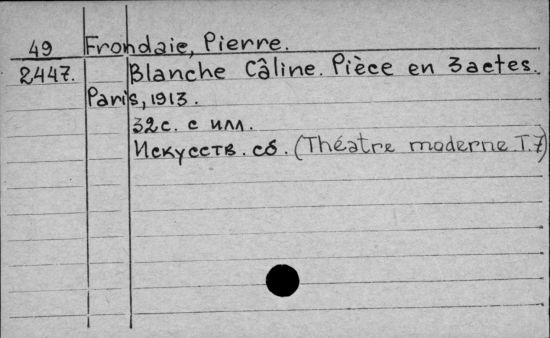 49 Frondaie, Pierre.
2447. Blanche Câline. Pièce en 3 actes.
Paris, 1913.
32 с. с илл.
Искусств. сб. (Théatre moderne. T. 7)